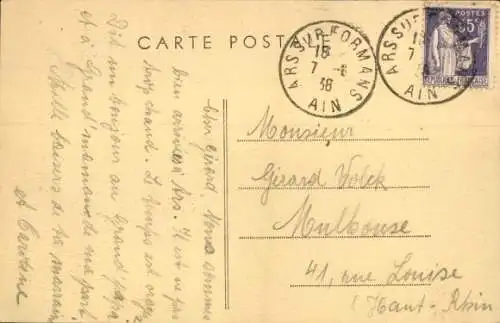 CARTE POSTALE
ARS SUR FORMANS
18
7 -8
38
AIN
ARS SUR
AIN
POSTES
Mon Gérard. Nous sommes
bien arrivées à Ars. Il est ne pas
trop chaud. Le temps est orageux
Dit un bonjour au Grand papa
et à Grand'maman de ma part
Mille baisers de ta marraine
et Caroline
Monsieur
Gérard Volck
Mulhouse
41, rue Louise
(Haut-Rhin